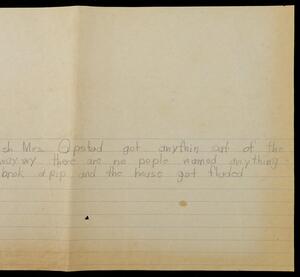 ish Mrs. Opstad got anythin out of the
way. wy there are no pople named anything
brok a pip and the house got fluded